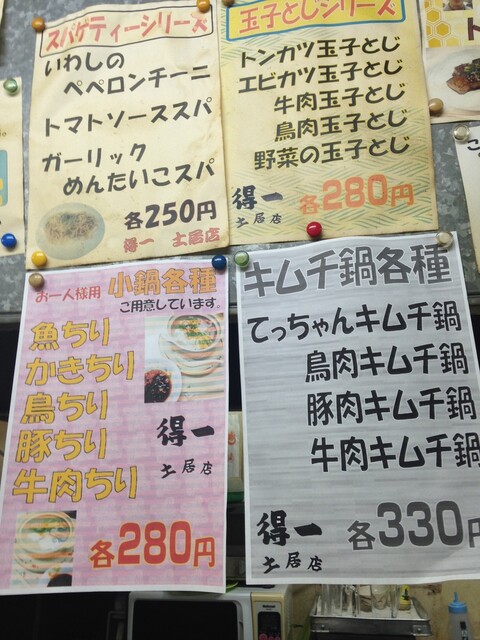 スパゲティーシリーズ
いわしの
ペペロンチーニ
トマトソーススパ
ガーリック
めんたいこスパ
各250円
得一 土居店
玉子とじシリーズ
トンカツ玉子とじ
エビカツ玉子とじ
牛肉玉子とじ
鳥肉玉子とじ
野菜の玉子とじ
得一
土居店
各280円
お一人様用 小鍋各種
ご用意しています
魚ちり
かきちり
鳥ちり
豚ちり
牛肉ちり
得一
土居店
各280円
キムチ鍋各種
てっちゃんキムチ鍋
鳥肉キムチ鍋
豚肉キムチ鍋
牛肉キムチ鍋
得一
土居店
各330円